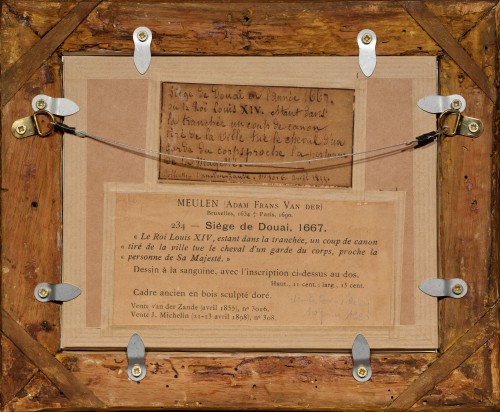 Siège de Douai en l'année 1667.
ou le Roi Louis XIV. estant dans
la tranchée un coup de canon
tiré de la Ville tue le cheval d'un
garde du corps proche la
MEULEN (Adam Frans Van der)
Bruxelles, 1634 † Paris, 1690.
234 — Siége de Douai, 1667.
« Le Roi Louis XIV, estant dans la tranchée, un coup de canon
« tiré de la ville tue le cheval d'un garde du corps, proche la
« personne de Sa Majesté. »
Dessin à la sanguine, avec l'inscription ci-dessus au dos.
Haut., 11 cent.; larg., 15 cent.
Cadre ancien en bois sculpté doré.
Vente van der Zande (avril 1855), nº 3016.
Vente J. Michelin (21-23 avril 1898), nº 308.